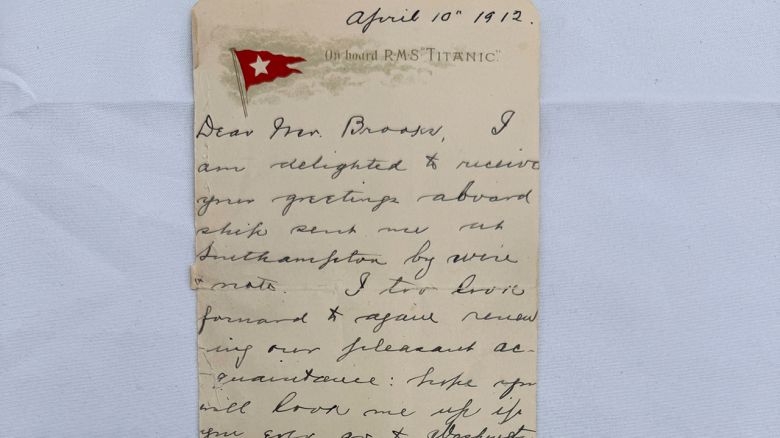 April 10" 1912.
On board R.M.S "TITANIC."
Dear Mr. Brooks, I
am delighted to receive
your greetings aboard
ship sent me at
Southampton by wire
& note. I too look
forward to again renew
-ing our pleasant ac-
quaintance: hope you
will look me up if
you ever go to Washingt